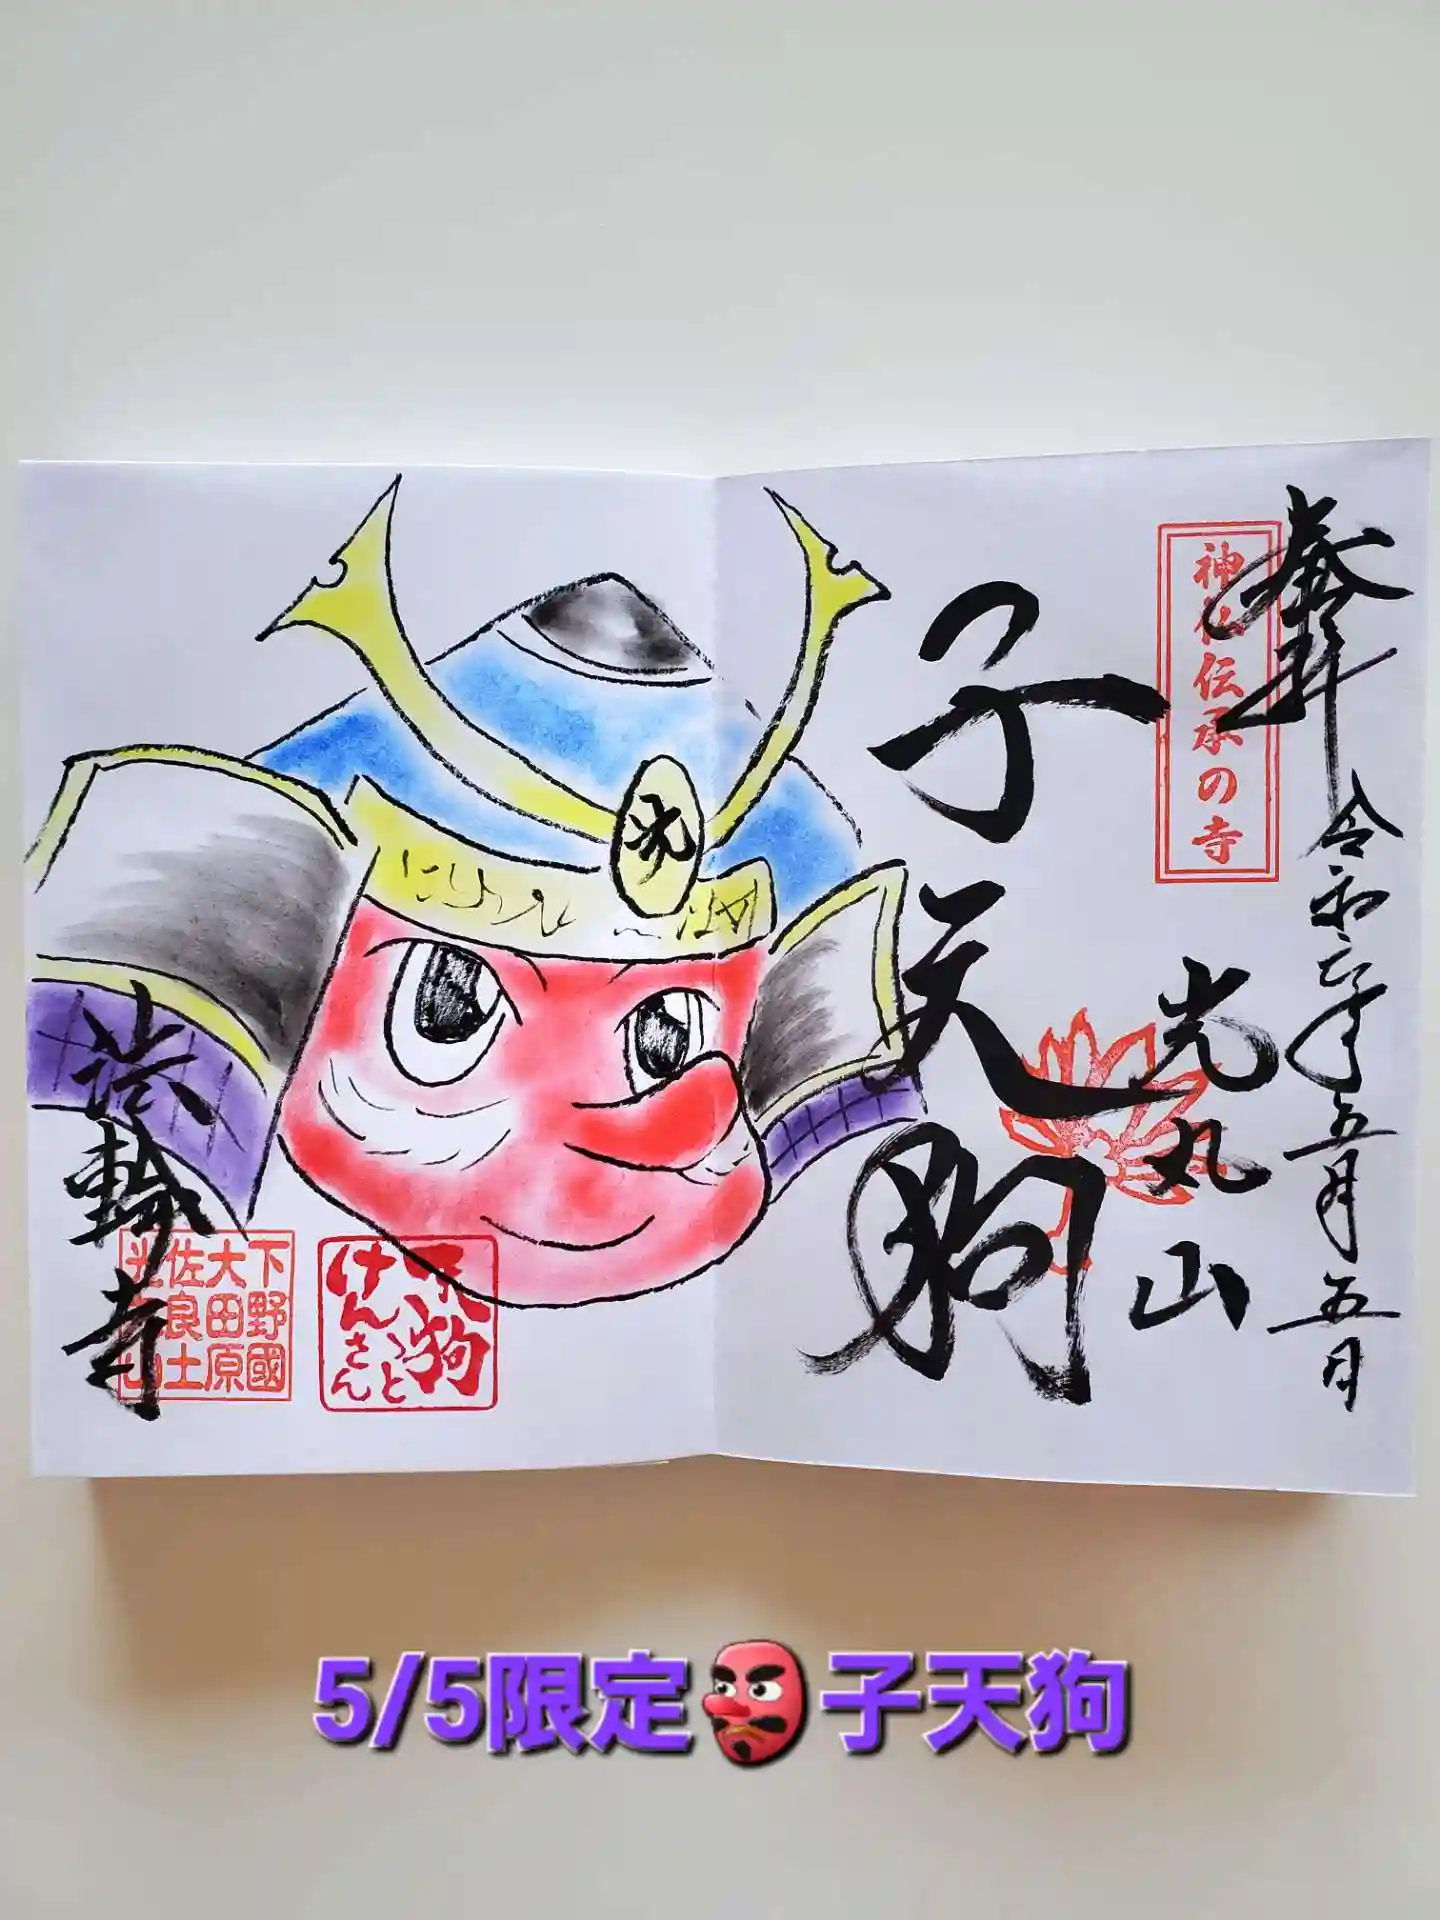 奉拝
令和六年五月五日
神仏伝承の寺
光丸山
子天狗
光
天狗
、と
けんさん
下野國
大田原
佐良土
光丸山
法輪寺
5/5限定👺子天狗